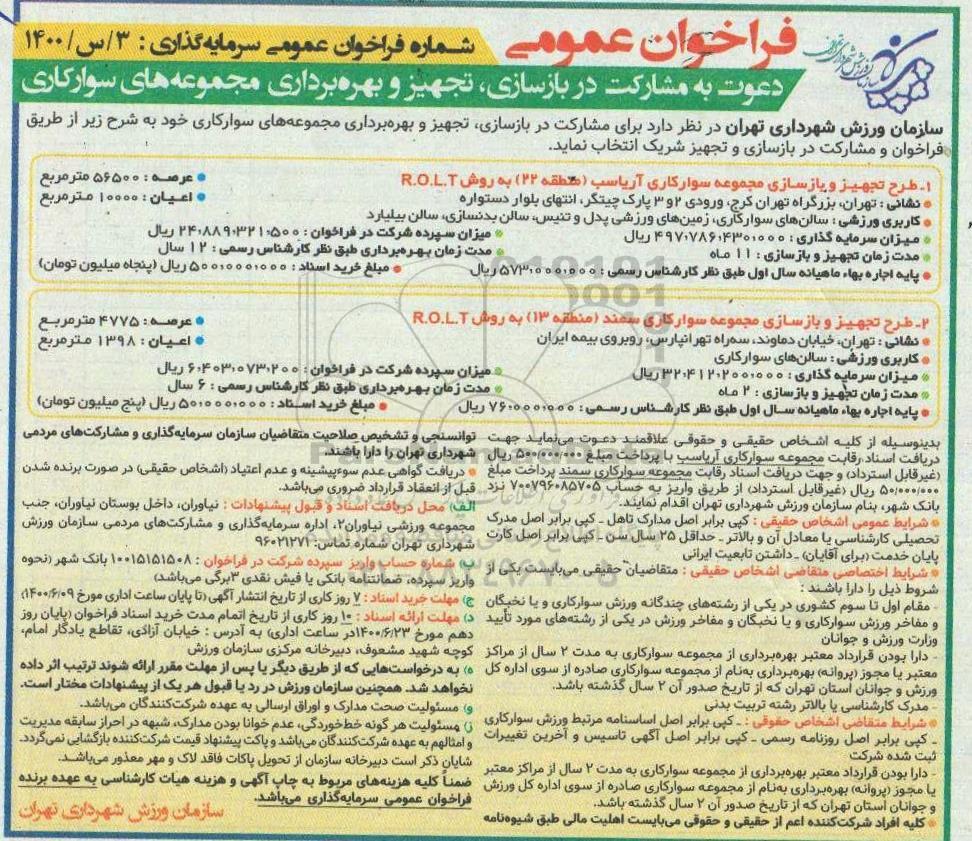 فراخوان عمومی
شماره فراخوان عمومی سرمایه‌گذاری: ۳/س/۱۴۰۰
دعوت به مشارکت در بازسازی، تجهیز و بهره‌برداری مجموعه‌های سوارکاری
سازمان ورزش شهرداری تهران در نظر دارد برای مشارکت در بازسازی، تجهیز و بهره‌برداری مجموعه‌های سوارکاری خود به شرح زیر از طریق
فراخوان و مشارکت در بازسازی و تجهیز شریک انتخاب نماید.
۱- طرح تجهیز و بازسازی مجموعه سوارکاری آریاسب (منطقه ۲۲) به روش R.O.L.T
عرصه: ۵۶۵۰۰ مترمربع
نشانی: تهران، بزرگراه تهران کرج، ورودی ۲و۳ پارک چیتگر، انتهای بلوار دستواره
اعیان: ۱۰۰۰۰ مترمربع
کاربری ورزشی: سالن‌های سوارکاری، زمین‌های ورزشی پدل و تنیس، سالن بدنسازی، سالن بیلیارد
میزان سرمایه گذاری: ۴۹۷.۷۸۶.۴۳۰.۰۰۰ ریال
میزان سپرده شرکت در فراخوان: ۲۴.۸۸۹.۳۲۱.۵۰۰ ریال
مدت زمان تجهیز و بازسازی: ۱۱ ماه
مدت زمان بهره‌برداری طبق نظر کارشناس رسمی: ۱۲ سال
پایه اجاره بهاء ماهیانه سال اول طبق نظر کارشناس رسمی: ۵۷۳.۰۰۰.۰۰۰ ریال
مبلغ خرید اسناد: ۵۰۰.۰۰۰.۰۰۰ ریال (پنجاه میلیون تومان)
۲- طرح تجهیز و بازسازی مجموعه سوارکاری سمند (منطقه ۱۳) به روش R.O.L.T
عرصه: ۴۷۷۵ مترمربع
نشانی: تهران، خیابان دماوند، سه‌راه تهرانپارس، روبروی بیمه ایران
اعیان: ۱۳۹۸ مترمربع
کاربری ورزشی: سالن‌های سوارکاری
میزان سرمایه گذاری: ۳۲.۴۱۲.۲۰۰.۰۰۰ ریال
میزان سپرده شرکت در فراخوان: ۶.۴۰۳.۰۷۳.۲۰۰ ریال
مدت زمان تجهیز و بازسازی: ۲ ماه
مدت زمان بهره‌برداری طبق نظر کارشناس رسمی: ۶ سال
پایه اجاره بهاء ماهیانه سال اول طبق نظر کارشناس رسمی: ۷۶.۰۰۰.۰۰۰ ریال
مبلغ خرید اسناد: ۵۰.۰۰۰.۰۰۰ ریال (پنج میلیون تومان)
بدینوسیله از کلیه اشخاص حقیقی و حقوقی علاقمند دعوت می‌نماید جهت
دریافت اسناد رقابت مجموعه سوارکاری آریاسب با پرداخت مبلغ ۵۰۰.۰۰۰.۰۰۰ ریال
(غیرقابل استرداد) و جهت دریافت اسناد رقابت مجموعه سوارکاری سمند پرداخت مبلغ
۵۰/۰۰۰/۰۰۰ ریال (غیرقابل استرداد) از طریق واریز به حساب ۷۰۰۷۹۶۰۸۵۷۰۵ نزد
بانک شهر، بنام سازمان ورزش شهرداری تهران اقدام نمایند.
شرایط عمومی اشخاص حقیقی: کپی برابر اصل مدارک تاهل - کپی برابر اصل مدرک
تحصیلی کارشناسی یا معادل آن و بالاتر - حداقل ۲۵ سال سن - کپی برابر اصل کارت
پایان خدمت (برای آقایان) - داشتن تابعیت ایرانی
شرایط اختصاصی متقاضی اشخاص حقیقی: متقاضیان حقیقی می‌بایست یکی از
شروط ذیل را دارا باشند:
- مقام اول تا سوم کشوری در یکی از رشته‌های چندگانه ورزش سوارکاری و یا نخبگان
و مفاخر ورزش سوارکاری و یا نخبگان و مفاخر ورزش در یکی از رشته‌های مورد تأیید
وزارت ورزش و جوانان
- دارا بودن قرارداد معتبر بهره‌برداری از مجموعه سوارکاری به مدت ۲ سال از مراکز
معتبر یا مجوز (پروانه) بهره‌برداری به‌نام از مجموعه سوارکاری صادره از سوی اداره کل
ورزش و جوانان استان تهران که از تاریخ صدور آن ۲ سال گذشته باشد.
- مدرک کارشناسی یا بالاتر رشته تربیت بدنی
شرایط متقاضی اشخاص حقوقی: - کپی برابر اصل اساسنامه مرتبط ورزش سوارکاری
- کپی برابر اصل روزنامه رسمی - کپی برابر اصل آگهی تاسیس و آخرین تغییرات
ثبت شده شرکت
- دارا بودن قرارداد معتبر بهره‌برداری از مجموعه سوارکاری به مدت ۲ سال از مراکز معتبر
یا مجوز (پروانه) بهره‌برداری به‌نام از مجموعه سوارکاری صادره از سوی اداره کل ورزش
و جوانان استان تهران که از تاریخ صدور آن ۲ سال گذشته باشد.
کلیه افراد شرکت‌کننده اعم از حقیقی و حقوقی می‌بایست اهلیت مالی طبق شیوه‌نامه
توانسنجی و تشخیص صلاحیت متقاضیان سازمان سرمایه‌گذاری و مشارکت‌های مردمی
شهرداری تهران را دارا باشند.
دریافت گواهی عدم سوءپیشینه و عدم اعتیاد (اشخاص حقیقی) در صورت برنده شدن
قبل از انعقاد قرارداد ضروری می‌باشد.
الف) محل دریافت اسناد و قبول پیشنهادات: نیاوران، داخل بوستان نیاوران، جنب
مجموعه ورزشی نیاوران۲، اداره سرمایه‌گذاری و مشارکت‌های مردمی سازمان ورزش
شهرداری تهران شماره تماس: ۹۶۰۲۱۲۷۱
ب) شماره حساب واریز سپرده شرکت در فراخوان: ۱۰۰۱۵۱۵۱۵۰۸ بانک شهر (نحوه
واریز سپرده، ضمانتنامه بانکی یا فیش نقدی ۳برگی می‌باشد)
ج) مهلت خرید اسناد: ۷ روز کاری از تاریخ انتشار آگهی (تا پایان ساعت اداری مورخ ۱۴۰۰/۶/۰۹)
د) مهلت ارائه اسناد: ۱۰ روز کاری از تاریخ اتمام مدت خرید اسناد فراخوان (پایان روز
دهم مورخ ۱۴۰۰/۶/۲۳در ساعت اداری) به آدرس: خیابان آزادی، تقاطع یادگار امام،
کوچه شهید مشعوف، دبیرخانه مرکزی سازمان ورزش
ه) به درخواست‌هایی که از طریق دیگر یا پس از مهلت مقرر ارائه شوند ترتیب اثر داده
نخواهد شد. همچنین سازمان ورزش در رد یا قبول هر یک از پیشنهادات مختار است.
و) مسئولیت صحت مدارک و اوراق ارسالی به عهده شرکت‌کنندگان می‌باشد.
ز) مسئولیت هر گونه خط‌خوردگی، عدم خوانا بودن مدارک، شبهه در احراز سابقه مدیریت
و امثالهم به عهده شرکت‌کنندگان می‌باشد و پاکت پیشنهاد قیمت شرکت‌کننده بازگشایی نمی‌گردد.
شایان ذکر است دبیرخانه سازمان از تحویل پاکات فاقد لاک و مهر معذور می‌باشد.
ضمناً کلیه هزینه‌های مربوط به چاپ آگهی و هزینه هیات کارشناسی به عهده برنده
فراخوان عمومی سرمایه‌گذاری می‌باشد.
سازمان ورزش شهرداری تهران